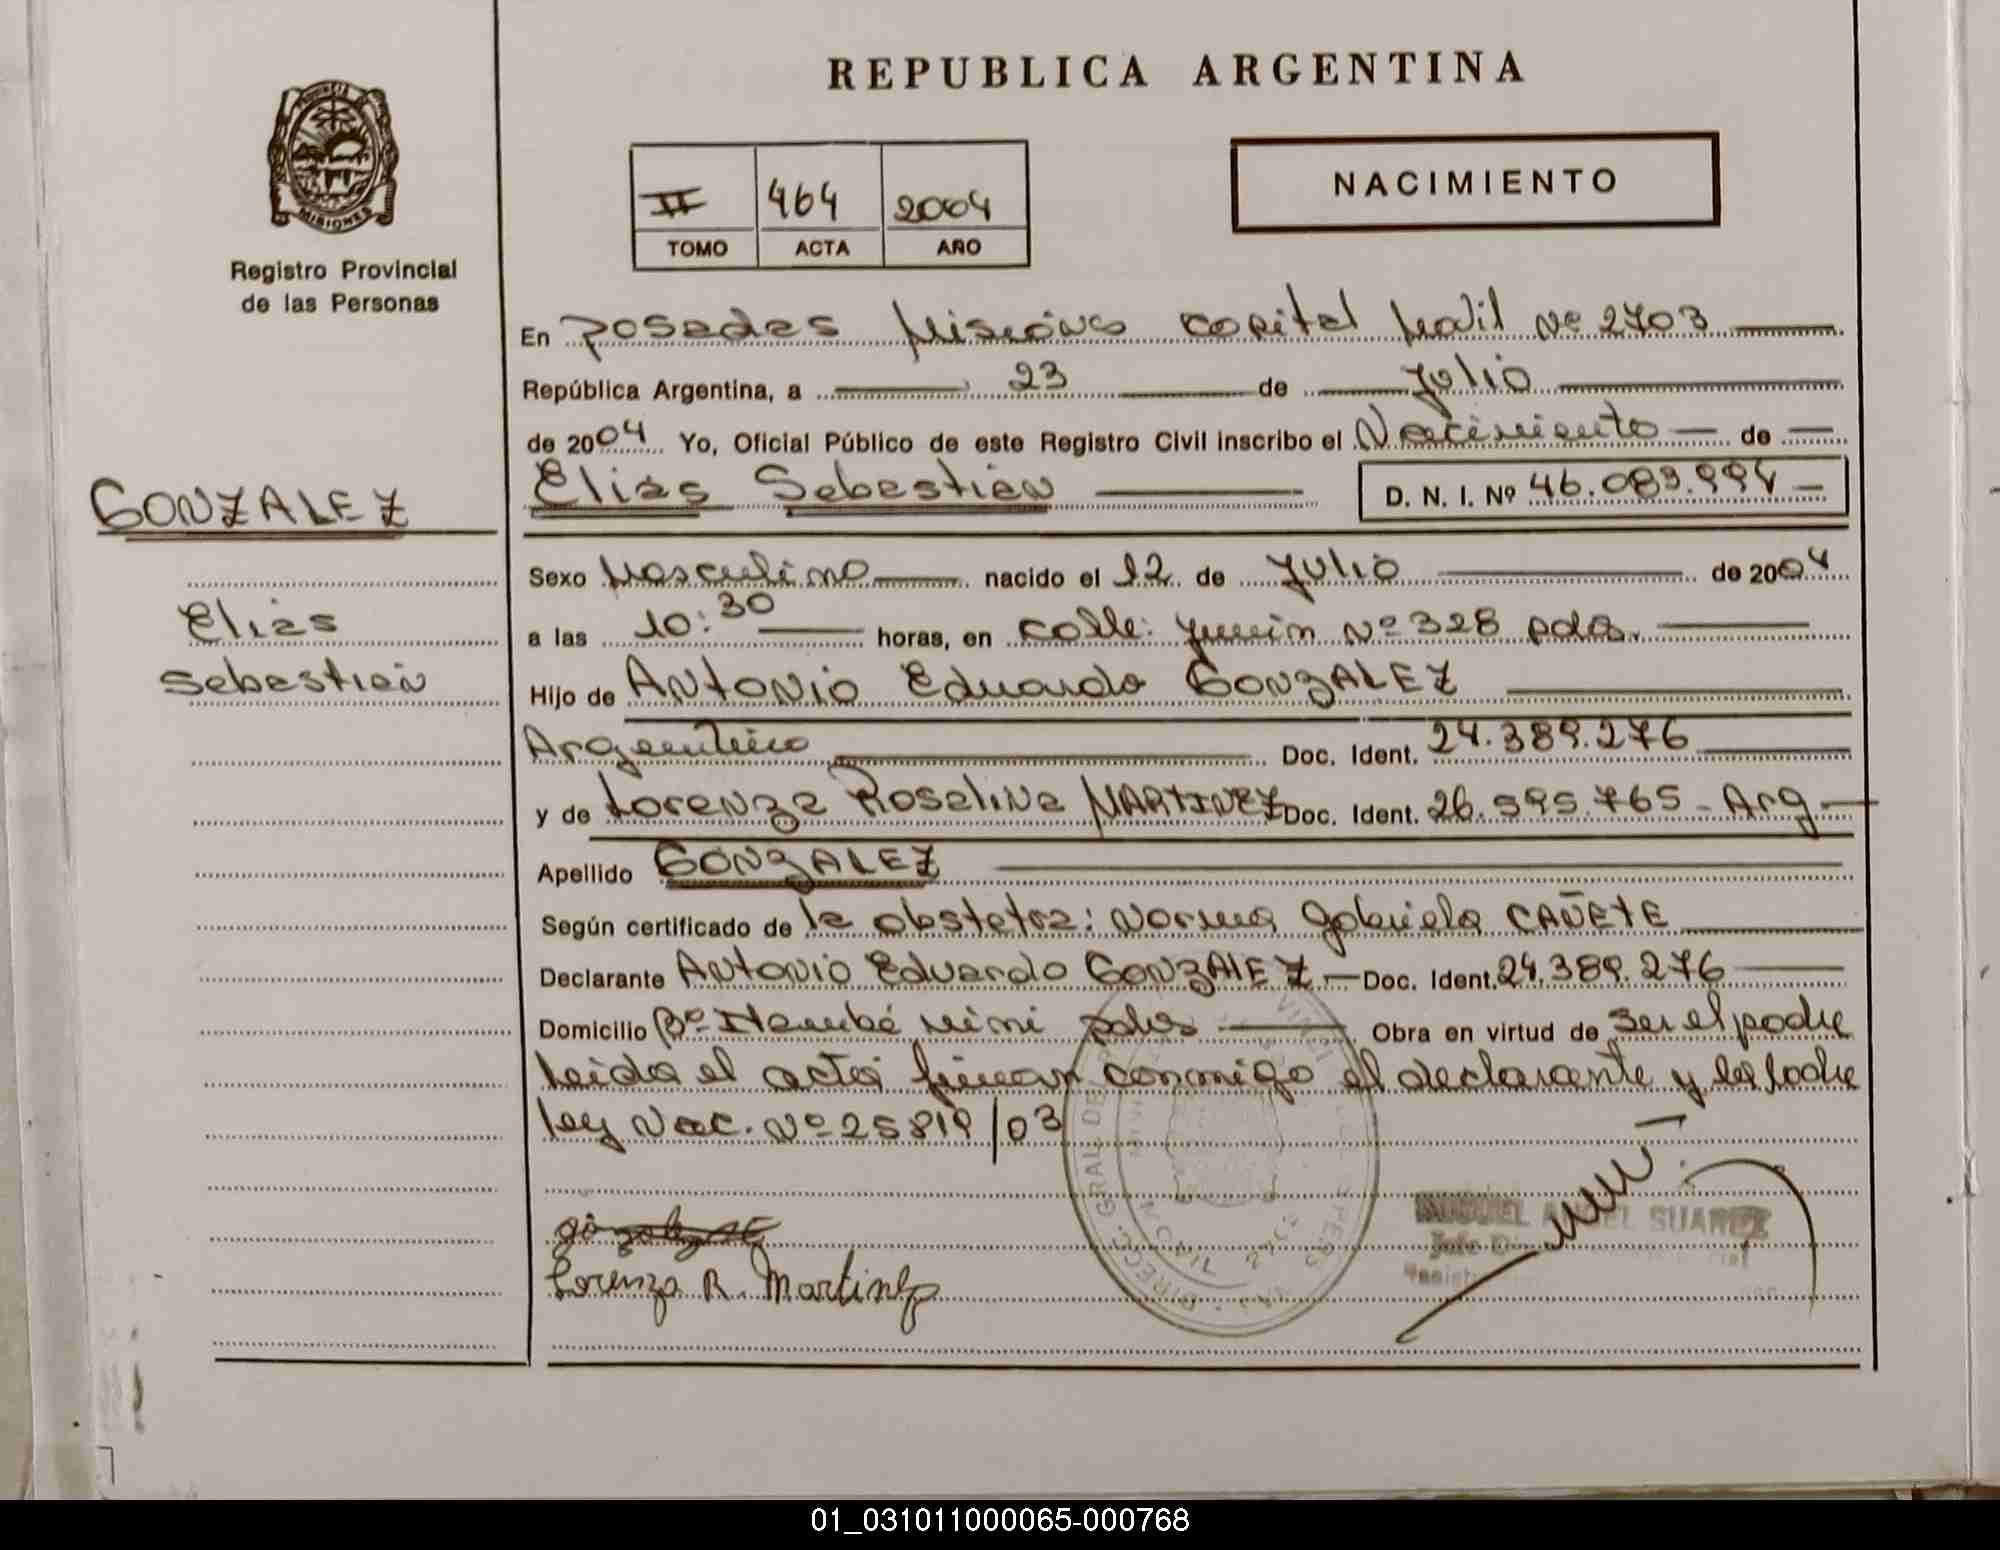 REPUBLICA ARGENTINA
PROVINCIA DE
MISIONES
Registro Provincial
de las Personas
II 464 2004
TOMO ACTA AÑO
NACIMIENTO
En Posadas Misiones Capital Movil Nº 2703
República Argentina, a 23 de Julio
de 2004 Yo, Oficial Público de este Registro Civil inscribo el Nacimiento de
GONZALEZ
Elias Sebastián D. N. I. Nº 46.089.994
Sexo Masculino nacido el 12 de Julio de 2004
Elías
a las 10:30 horas, en calle: Junín Nº 328 pdas.
Sebastián
Hijo de ANTONIO Eduardo GONZALEZ
Argentino Doc. Ident. 24.389.276
y de Lorenza Roselina MARTINEZ Doc. Ident. 26.595.765 - Arg
Apellido GONZALEZ
Según certificado de la obstetra: Norma Gabriela CAÑETE
Declarante ANTONIO Eduardo GONZALEZ Doc. Ident. 24.389.276
Domicilio Bº Itaembé Miní pdas Obra en virtud de ser el padre
Leída el acta firman conmigo el declarante y la madre
Ley Nac. Nº 25819/03
DIREC. GRAL DE
MIGUEL ANGEL SUAREZ
Jefe
Lorenza R. Martinez
01_031011000065-000768